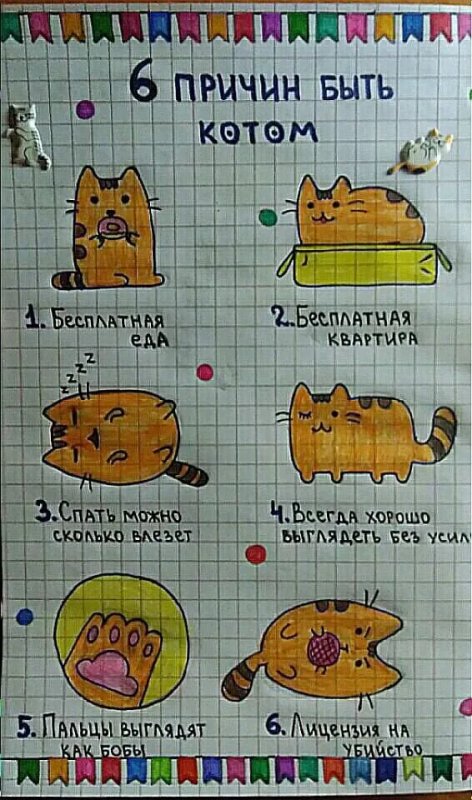 6 ПРИЧИН БЫТЬ
КОТОМ
1. БЕСПЛАТНАЯ
ЕДА
2. БЕСПЛАТНАЯ
КВАРТИРА
z z z z
3. СПАТЬ МОЖНО
СКОЛЬКО ВЛЕЗЕТ
4. ВСЕГДА ХОРОШО
ВЫГЛЯДЕТЬ БЕЗ УСИЛ
5. ПАЛЬЦЫ ВЫГЛЯДЯТ
КАК БОБЫ
6. ЛИЦЕНЗИЯ НА
УБИЙСТВО